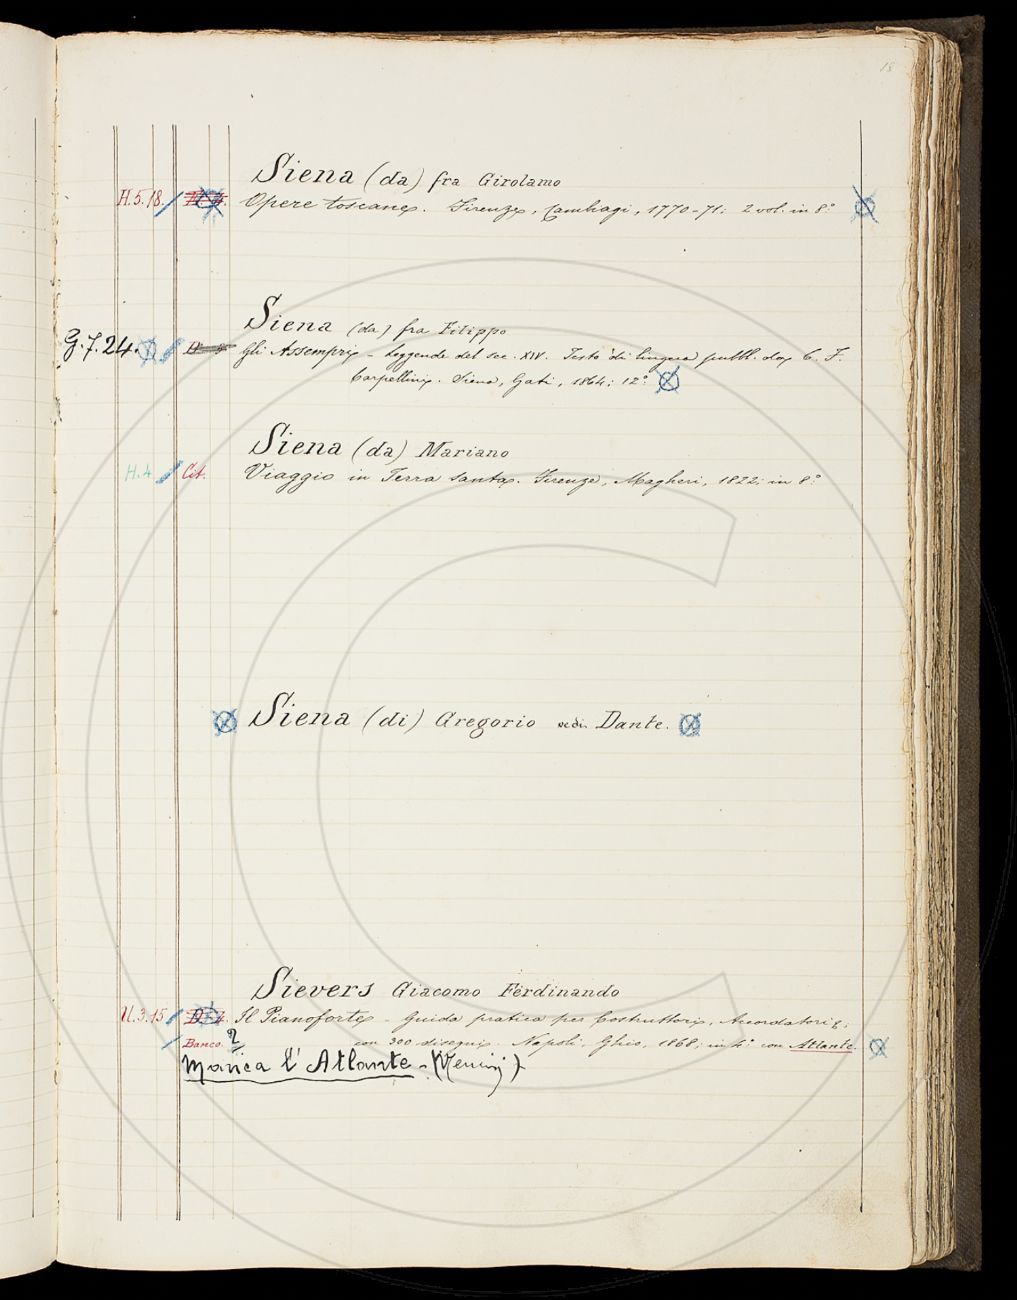 18
Siena (da) fra Girolamo
H.5.18. Opere toscane. Firenze, Cambiagi, 1770-71; 2 vol. in 8°
Siena (da) fra Filippo
G.7.24. Gli Assempri - Leggende del sec. XIV. Testo di lingua pubbl. da C. F.
Carpellini. Siena, Gati, 1864; 12°
Siena (da) Mariano
H.4 Cit. Viaggio in Terra santa. Firenze, Magheri, 1822; in 8°
Siena (di) Gregorio vedi Dante.
Sievers Giacomo Ferdinando
U.3.15 Il Pianoforte - Guida pratica per Costruttori, Accordatori &;
Banco. ? con 300 disegni. Napoli, Ghio, 1868; in 4° con Atlante.
Manca l'Atlante -